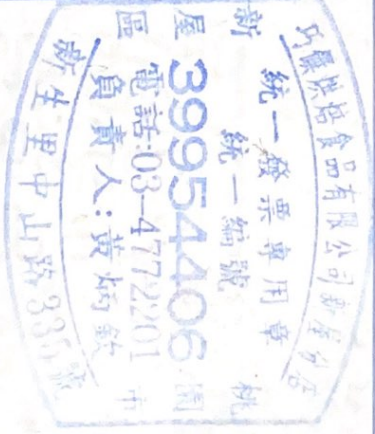 烘焙食品有限公司新屋分店
統一發票專用章
統一編號
39954406
電話:03-4772201
負責人:黃炳欽
桃園市
新屋區
新生里中山路335號